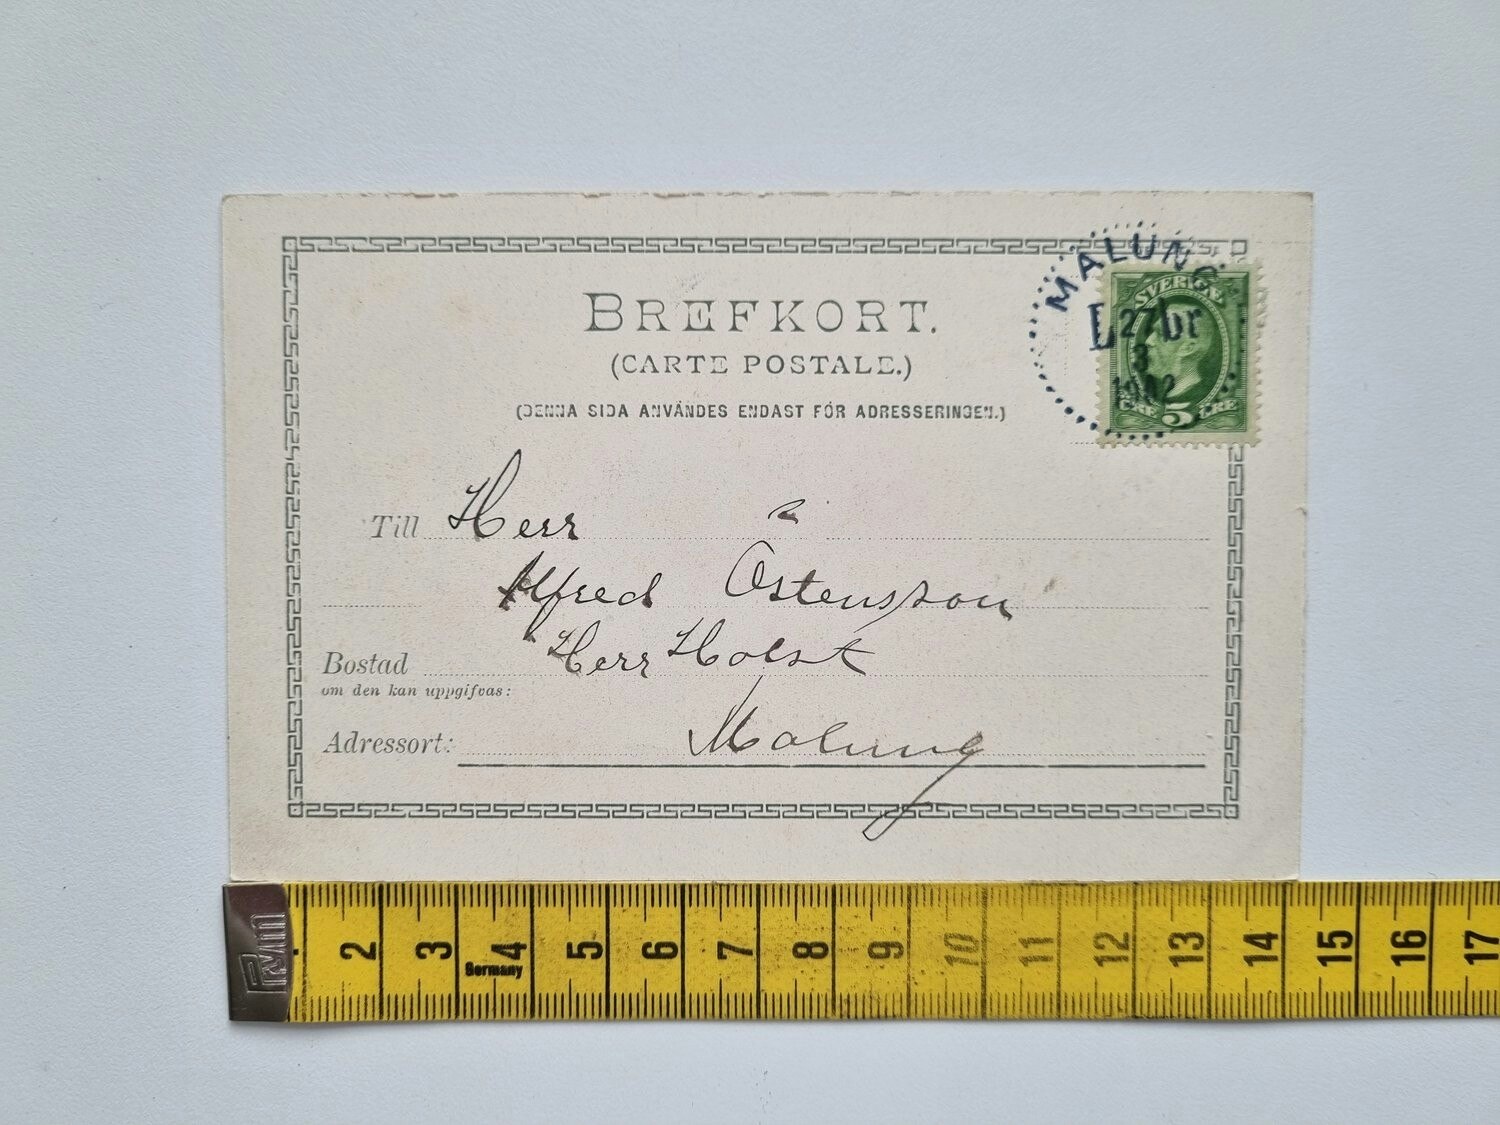 BREFKORT.
(CARTE POSTALE.)
(DENNA SIDA ANVÄNDES ENDAST FÖR ADRESSERINGEN.)
MALUNG
Lbr
27
3
1902
SVERIGE
5
ÖRE ÖRE
Till Herr
Alfred Östensson
Bostad Herr Holst
om den kan uppgifvas:
Adressort: Malung
Prym
2 3 4 5 6 7 8 9 10 11 12 13 14 15 16 17
Germany